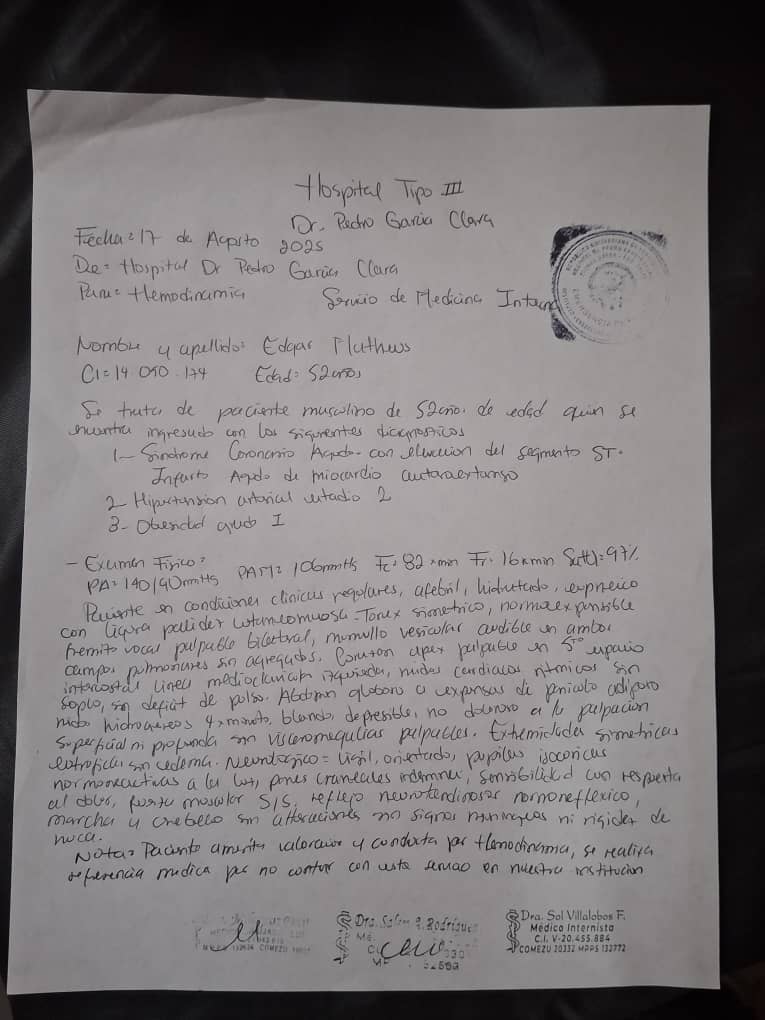 Hospital Tipo III
Dr. Pedro Garcia Clara
Fecha: 17 de Agosto 2025
De: Hospital Dr Pedro Garcia Clara
Para: Hemodinamia Servicio de Medicina Interna
Nombre y apellido: Edgar Matheus
CI: 14.050.174 Edad: 52años
Se trata de paciente masculino de 52 años de edad quien se
encuentra ingresado con los siguientes diagnosticos
1- Sindrome Coronario Agudo con elevacion del segmento ST.
Infarto Agudo de miocardio
2- Hipertension arterial estadio 2
3- Obesidad grado I
- Examen Fisico:
PA: 140/90mmHg PAM: 106mmHg Fc: 82 xmin Fr: 16xmin 97%
Paciente en condiciones clinicas regulares, afebril, hidratado, eupneico
con ligera palidez cutaneomucosa. Torax simetrico, normoexpansible
fremito vocal palpable bilateral, murmullo vesicular audible en ambos
campos pulmonares sin agregados. Corazon apex palpable en 5to espacio
intercostal linea medioclavicular izquierda, ruidos cardiacos ritmicos sin
soplo, sin deficit de pulso. Abdomen globoso a expensas de paniculo adiposo
ruidos hidroaereos 4xminuto, blando, depresible, no doloroso a la palpacion
superficial ni profunda sin visceromegalias palpables. Extremidades simetricas
eutroficas sin edema. Neurologico: vigil, orientado, pupilas isocoricas
normoreactivas a la luz, pares craneales indemnes, sensibilidad con respuesta
al dolor, fuerza muscular 5/5, reflejo neurotendinosos normoreflexico,
marcha y cerebelo sin alteraciones sin signos meningeos ni rigidez de
nuca.
Nota: Paciente amerita valoracion y conducta por Hemodinamia, se realiza
referencia medica por no contar con este servicio en nuestra institucion
Dra. Rodriguez
Dra. Sol Villalobos F.
Médico Internista
C.I. V-20.455.884
COMEZU 20332 MPPS 132772